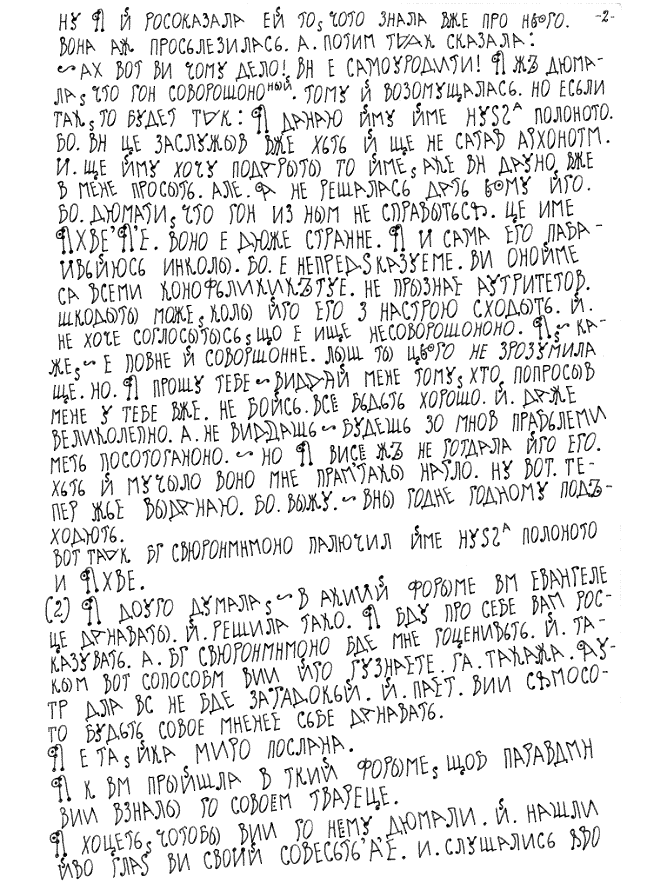 НУ ¶ Й РОСОКАЗАЛА ЕЙ ТО, ЧОТО ЗНАЛА ВЖЕ ПРО НЬОГО. -2-
ВОНА АЖ ПРОСЬЛЕЗИЛАСЬ. А. ПОТИМ ТАК СКАЗАЛА:
~АХ ВОТ ВИ ЧОМУ ДЕЛО! ВН Е САМОУРОДИТИ! ¶ ЖЪ ДЮМА-
ЛА, ЧТО ГОН СОВОРЩОНОНЫЙ. ТОМУ Й ВОЗОМУЩАЛАСЬ. НО ЕСЬЛИ
ТАК, ТО БУДЕТ ТАК: ¶ ДАНАЮ ЙМУ ЙМЕ НУSZА ПОЛОНОТО.
БО. ВН ЦЕ ЗАСЛУЖЫВ ВЖЕ ХЬТЬ Й ЩЕ НЕ САТАВ АРХОНОТМ.
И. ЩЕ ЙМУ ХОЧУ ПОДАРЫТЫ ТО ЙМЕ, АКЕ ВН ДАУНО ВЖЕ
В МЕНЕ ПРОСЫТЬ. АЛЕ. А НЕ РЕШАЛАСЬ ДАТЬ ВОМУ ЙГО.
БО. ДЮМАТИ, ЧТО ГОН ИЗ НЫМ НЕ СПРАВЫТЬСА. ЦЕ ИМЕ
¶ХВЕ'¶'Е. ВОНО Е ДЮЖЕ СТРАННЕ. ¶ И САМА ЕГО ПАБА-
ИВЬЙЮСЬ ИНКОЛЫ. БО. Е НЕПРЕДSКАЗУЕМЕ. ВИ ОНОЙМЕ
СА ВСЕМИ КОНОФЬЛИКИКЪТУЕ. НЕ ПРЫЗНАЕ АУТРИТЕТОВ.
ШКОДЫТЫ МОЖЕ, КОЛЫ ЙГО ЕГО З НАСТРОЮ СХОДЫТЬ. Й.
НЕ ХОЧЕ СОГЛОСЫТЫСЬ, ЩО Е ИЩЕ НЕСОВОРШОНОНО. ¶,~ КА-
ЖЕ,~ Е ПОВНЕ Й СОВОРЩОННЕ. ЛЫШ ТЫ ЦЬОГО НЕ ЗРОЗУМИЛА
ЩЕ. НО. ¶ ПРОШУ ТЕБЕ ~ ВИДДАЙ МЕНЕ ТОМУ, ХТО ПОПРОСЫВ
МЕНЕ У ТЕБЕ ВЖЕ. НЕ БОЙСЬ. ВСЁ БЬДЬТЬ ХОРОШО. Й. ДАЖЕ
ВЕЛИКОЛЕПНО. А. НЕ ВИДДАЩЬ ~ БУДЕЩЬ ЗО МНОВ ПРАБЬЛЕМИ
МЕТЬ ПОСОТОГАНОНО. ~ НО ¶ ВИСЕ ЖЪ НЕ ГОТДАЛА ЙГО ЕГО.
ХЬТЬ Й МУЧЫЛО ВОНО МНЕ ПРАМ'ТАКЫ НАГЛО. НУ ВОТ. ТЕ-
ПЕР ЖЬЕ ВЫДАНАЮ. БО. ВЫЖУ. ~ ВНЫ ГОДНЕ ГОДНОМУ ПОДЪ-
ХОДЮТЬ.
ВОТ ТАК БГ СВЮРОНМНМОНО ПАЛЮЧИЛ ЙМЕ НУSZА ПОЛОНОТО
И ¶ХВЕ.
(2) ¶ ДОУГО ДУМАЛА, ~ В АКИЙЙ ФОРЫМЕ ВМ ЕВАНГЕЛЕ
ЦЕ ДАНАВАТЫ. Й. РЕШИЛА ТАКО. ¶ БДУ ПРО СЕБЕ ВАМ РОС-
КАЗУВАТЬ. А. БГ СВЮРОНМНМОНО БДЕ МНЕ ГОЦЕНИВЬТЬ. Й. ТА-
КЫМ ВОТ СОПОСОБМ ВИИ ЙГО ГУЗНАЕТЕ. ГА. ТАКАЖА. АУ-
ТР ДЛА ВС НЕ БДЕ ЗАГАДОКЬЙ. Й. ПАЕТ. ВИИ САМОСО-
ТО БУДЬТЬ СОВОЕ МНЕНЕЕ СЬБЕ ДАНАВАТЬ.
¶ Е ТА, ЙКА МИРО ПОСЛАНА.
¶ К ВМ ПРЫЙШЛА В ТКИЙ ФОРЫМЕ, ЩОБ ПАРАВДМН
ВИИ ВЗНАЛЫ ГО СОВОЕМ ТВАРЕЦЕ.
¶ ХОЦЕТЬ, ЧОТОБЫ ВИИ ГО НЕМУ ДЮМАЛИ. Й. НАШЛИ
ЙВО ГЛАS ВИ СВОИЙ СОВЕСЬТЬ'А'Е. И. СЛУЩАЛИСЬ ЯВО